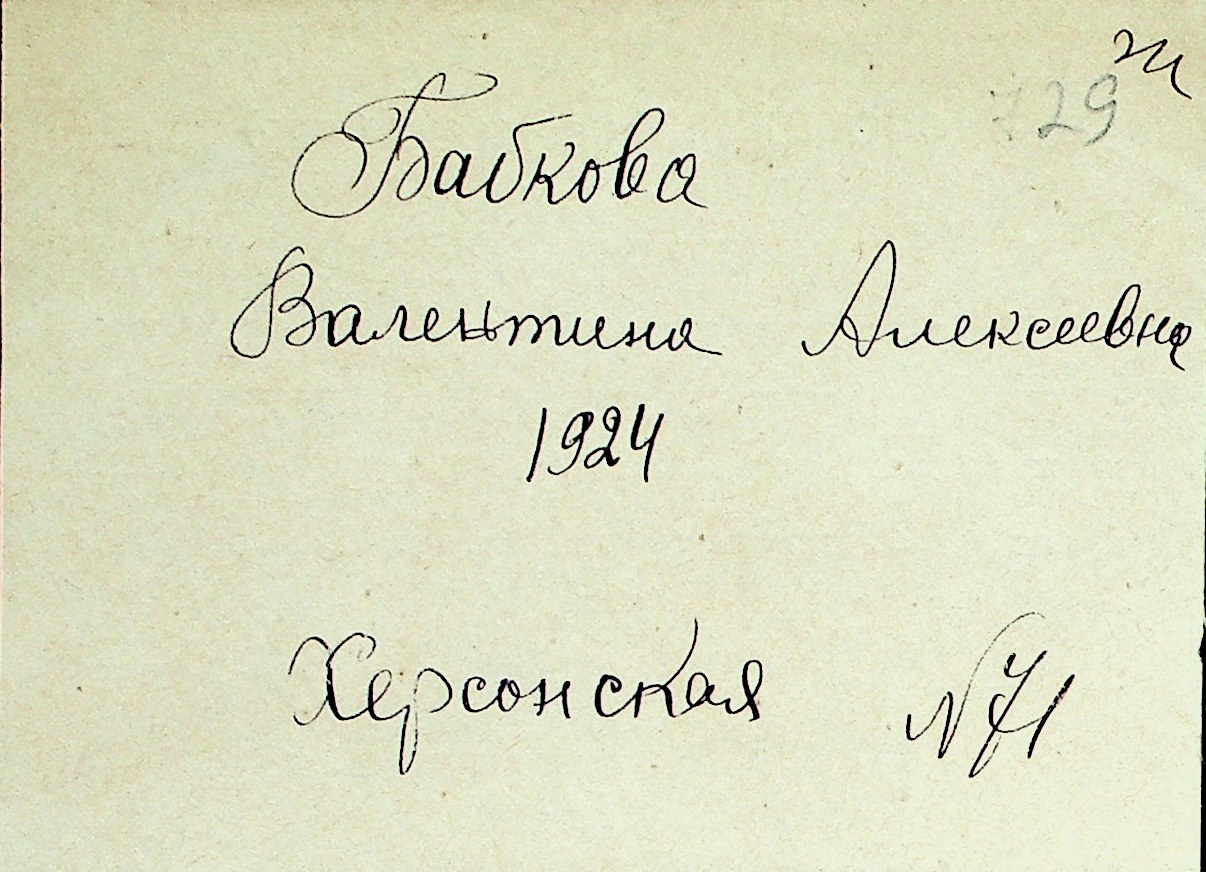 729
Бабкова
Валентина Алексеевна
1924
Херсонская N 71